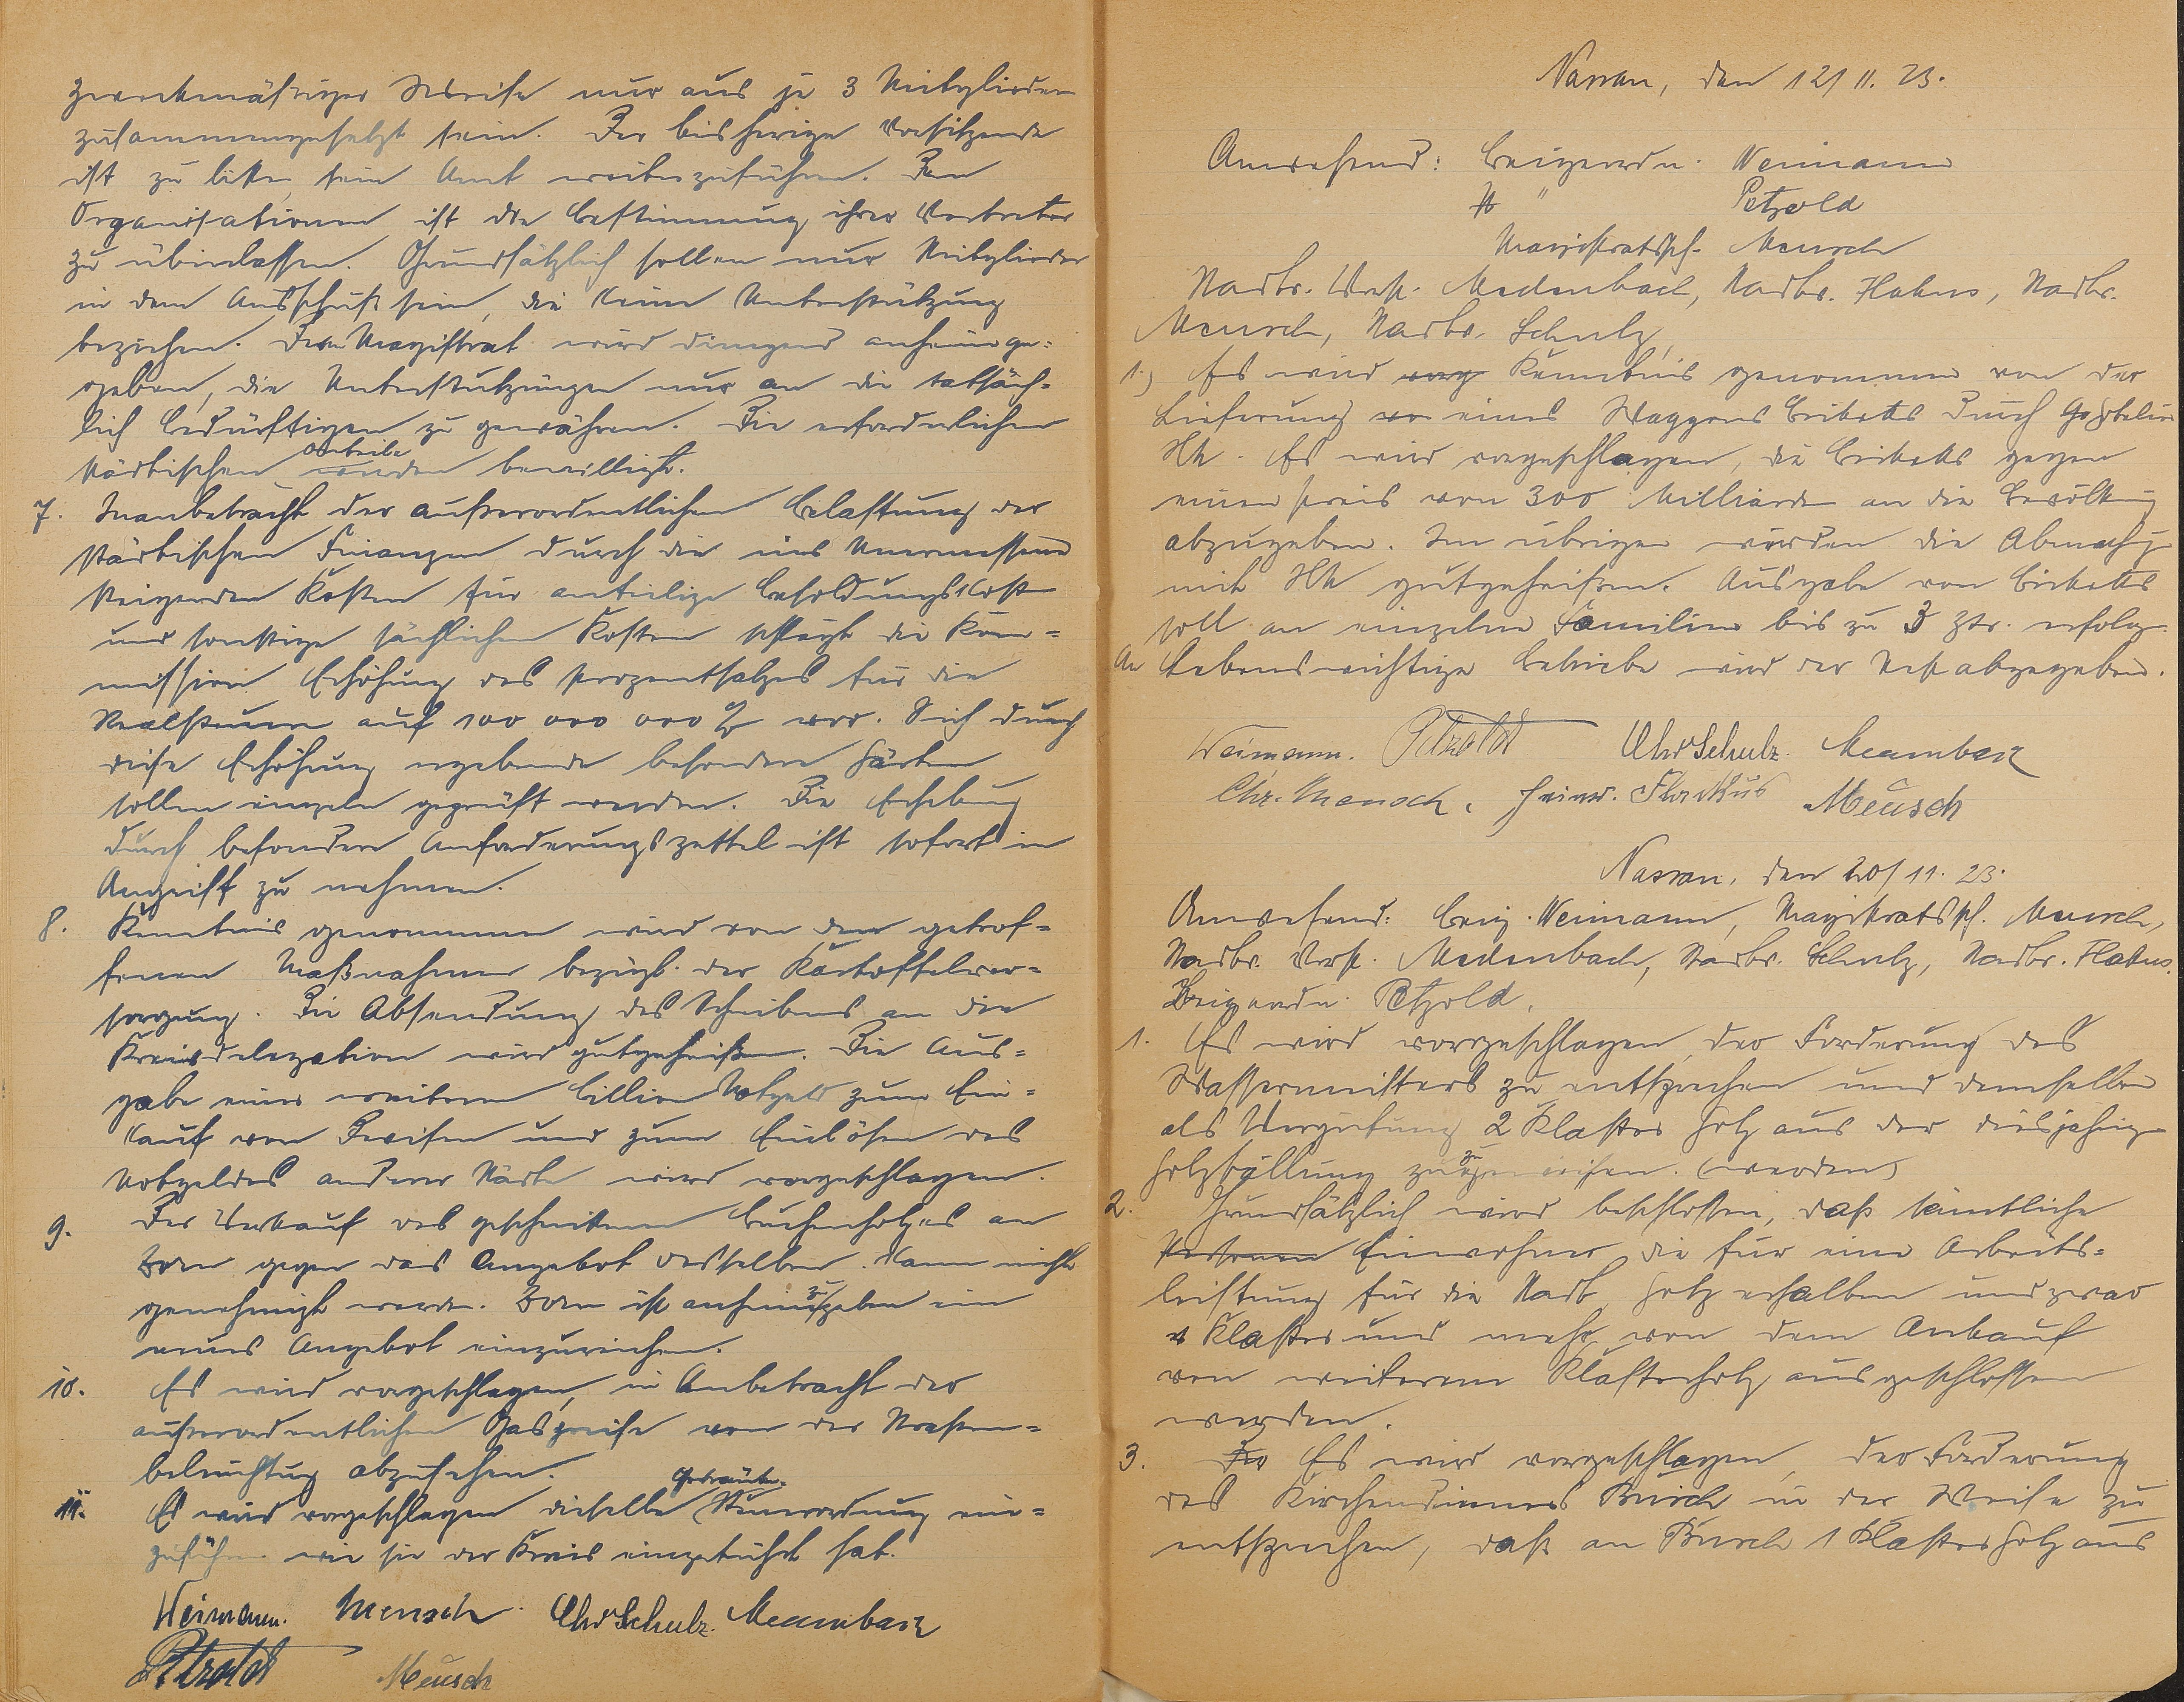 zweckmäßiger Weise nur aus je 3 Mitglieder
zusammengesetzt sein. Der bisherige Vorsitzende
ist zu bitten sein Amt weiterzuführen. Den
Organisationen ist die Bestimmung ihrer Vertreter
zu überlassen. Grundsätzlich sollen nur Mitglieder
in dem Ausschuß sein, die keine Unterstützung
beziehen. Dem Magistrat wird dringend anheimge=
geben, die Unterstützungen nur an die tatsäch=
lich Bedürftigen zu gewähren. Die erforderlichen
städtischen Anteile werden bewilligt.
7. Inanbetracht der außerordentlichen Belastung der
städtischen Finanzen durch die ins Unermessene
steigenden Kosten für anteilige Besoldungskosten
und sonstige sächlichen Kosten schlägt die Kom=
mission Erhöhung des Prozentsatzes für die
Realsteuern auf 100 000 000 % vor. Sich durch
diese Erhöhung ergebende besondere Härten
sollen einzeln geprüft werden. Die Erhebung
durch besondere Anforderungszettel ist sofort in
Angriff zu nehmen.
8. Kenntnis genommen wird von den getrof=
fenen Maßnahmen bezügl. der Kartoffelver=
sorgung. Die Absendung des Schreibens an die
Kreisdelegation wird gutgeheißen. Die Aus=
gabe einer weiteren Billion Notgeld zum Ein=
kauf von Devisen und zum Einlösen des
Notgeldes anderer Städte wird vorgeschlagen.
9. Der Verkauf des geschnittenen Buchenholzes an
Born gegen das Angebot desselben kann nicht
genehmigt werden. Born ist anheimzugeben ein
neues Angebot einzureichen.
10. Es wird vorgeschlagen, in Anbetracht der
außerordentlichen Gaspreise von der Straßen=
beleuchtung abzusehen.
11. Es wird vorgeschlagen dieselbe Getränke-Steuerordnung ein=
zuführen wie sie der Kreis eingeführt hat.
Weimann. Mensch. Chr Schulz. Medenbach
Petzold Meusch
Nassau, den 12/11. 23.
Anwesend: Beigeordn. Weimann
" Petzold
Magistratssch. Meusch
Stadtv. Vorst. Medenbach, Stadtv. Flakus, Stadtv.
Meusch, Stadtv. Schulz,
1.) Es wird Kenntnis genommen von der
Lieferung eines Waggons Briketts durch
Es wird vorgeschlagen, die Briketts gegen
einen Preis von 300 Milliarden an die Bevölkerung
abzugeben. Im übrigen wurden die
mit gutgeheißen. Ausgabe von Briketts
soll an einzelne Familien bis zu 3 Ztr. erfolgen.
An Lebenswichtige Betriebe wird der Rest abgegeben.
Weimann. Petzold Chr Schulz. Medenbach
Chr. Mensch. Heinr. Flakus Meusch
Nassau, den 20/11. 23.
Anwesend: Beig. Weimann, Magistratssch. Meusch,
Stadtv. Vorst. Medenbach, Stadtv. Schulz, Stadtv. Flakus.
Beigeordn. Petzold.
1. Es wird vorgeschlagen, der Forderung des
Wassermeisters zu entsprechen und demselben
als Vergütung 2 Klafter Holz aus der diesjährigen
Holzfällung zuzuweisen. (werden)
2. Grundsätzlich wird beschlossen, daß sämtliche
Personen Einwohner, die für eine Arbeits=
leistung für die Stadt Holz erhalten und zwar
Klafter und mehr von dem Ankauf
von weiterem Klafterholz ausgeschlossen
werden.
3. Es wird vorgeschlagen, der Forderung
des Kirchendieners Busch in der Weise zu
entsprechen, daß an Busch 1 Klafter Holz aus